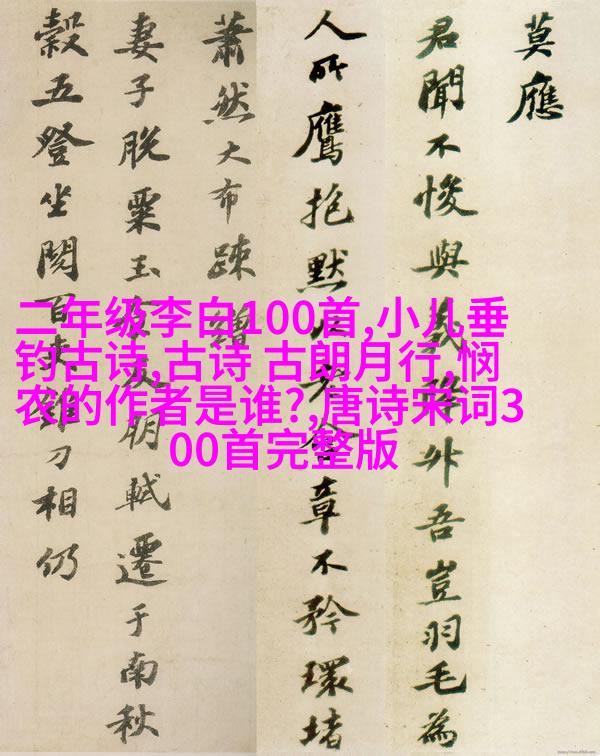 莫應
君聞不悛與義降升吾豈羽毛為
人所鷹抱默以老含章不矜環堵
蕭然大布疎繒
妻子脫粟玉食友朋軾遷于南秋
穀五登坐閱百吏錐刀相仍
二年级李白100首,小儿垂
钓古诗,古诗 古朗月行,悯
农的作者是谁?,唐诗宋词3
00首完整版